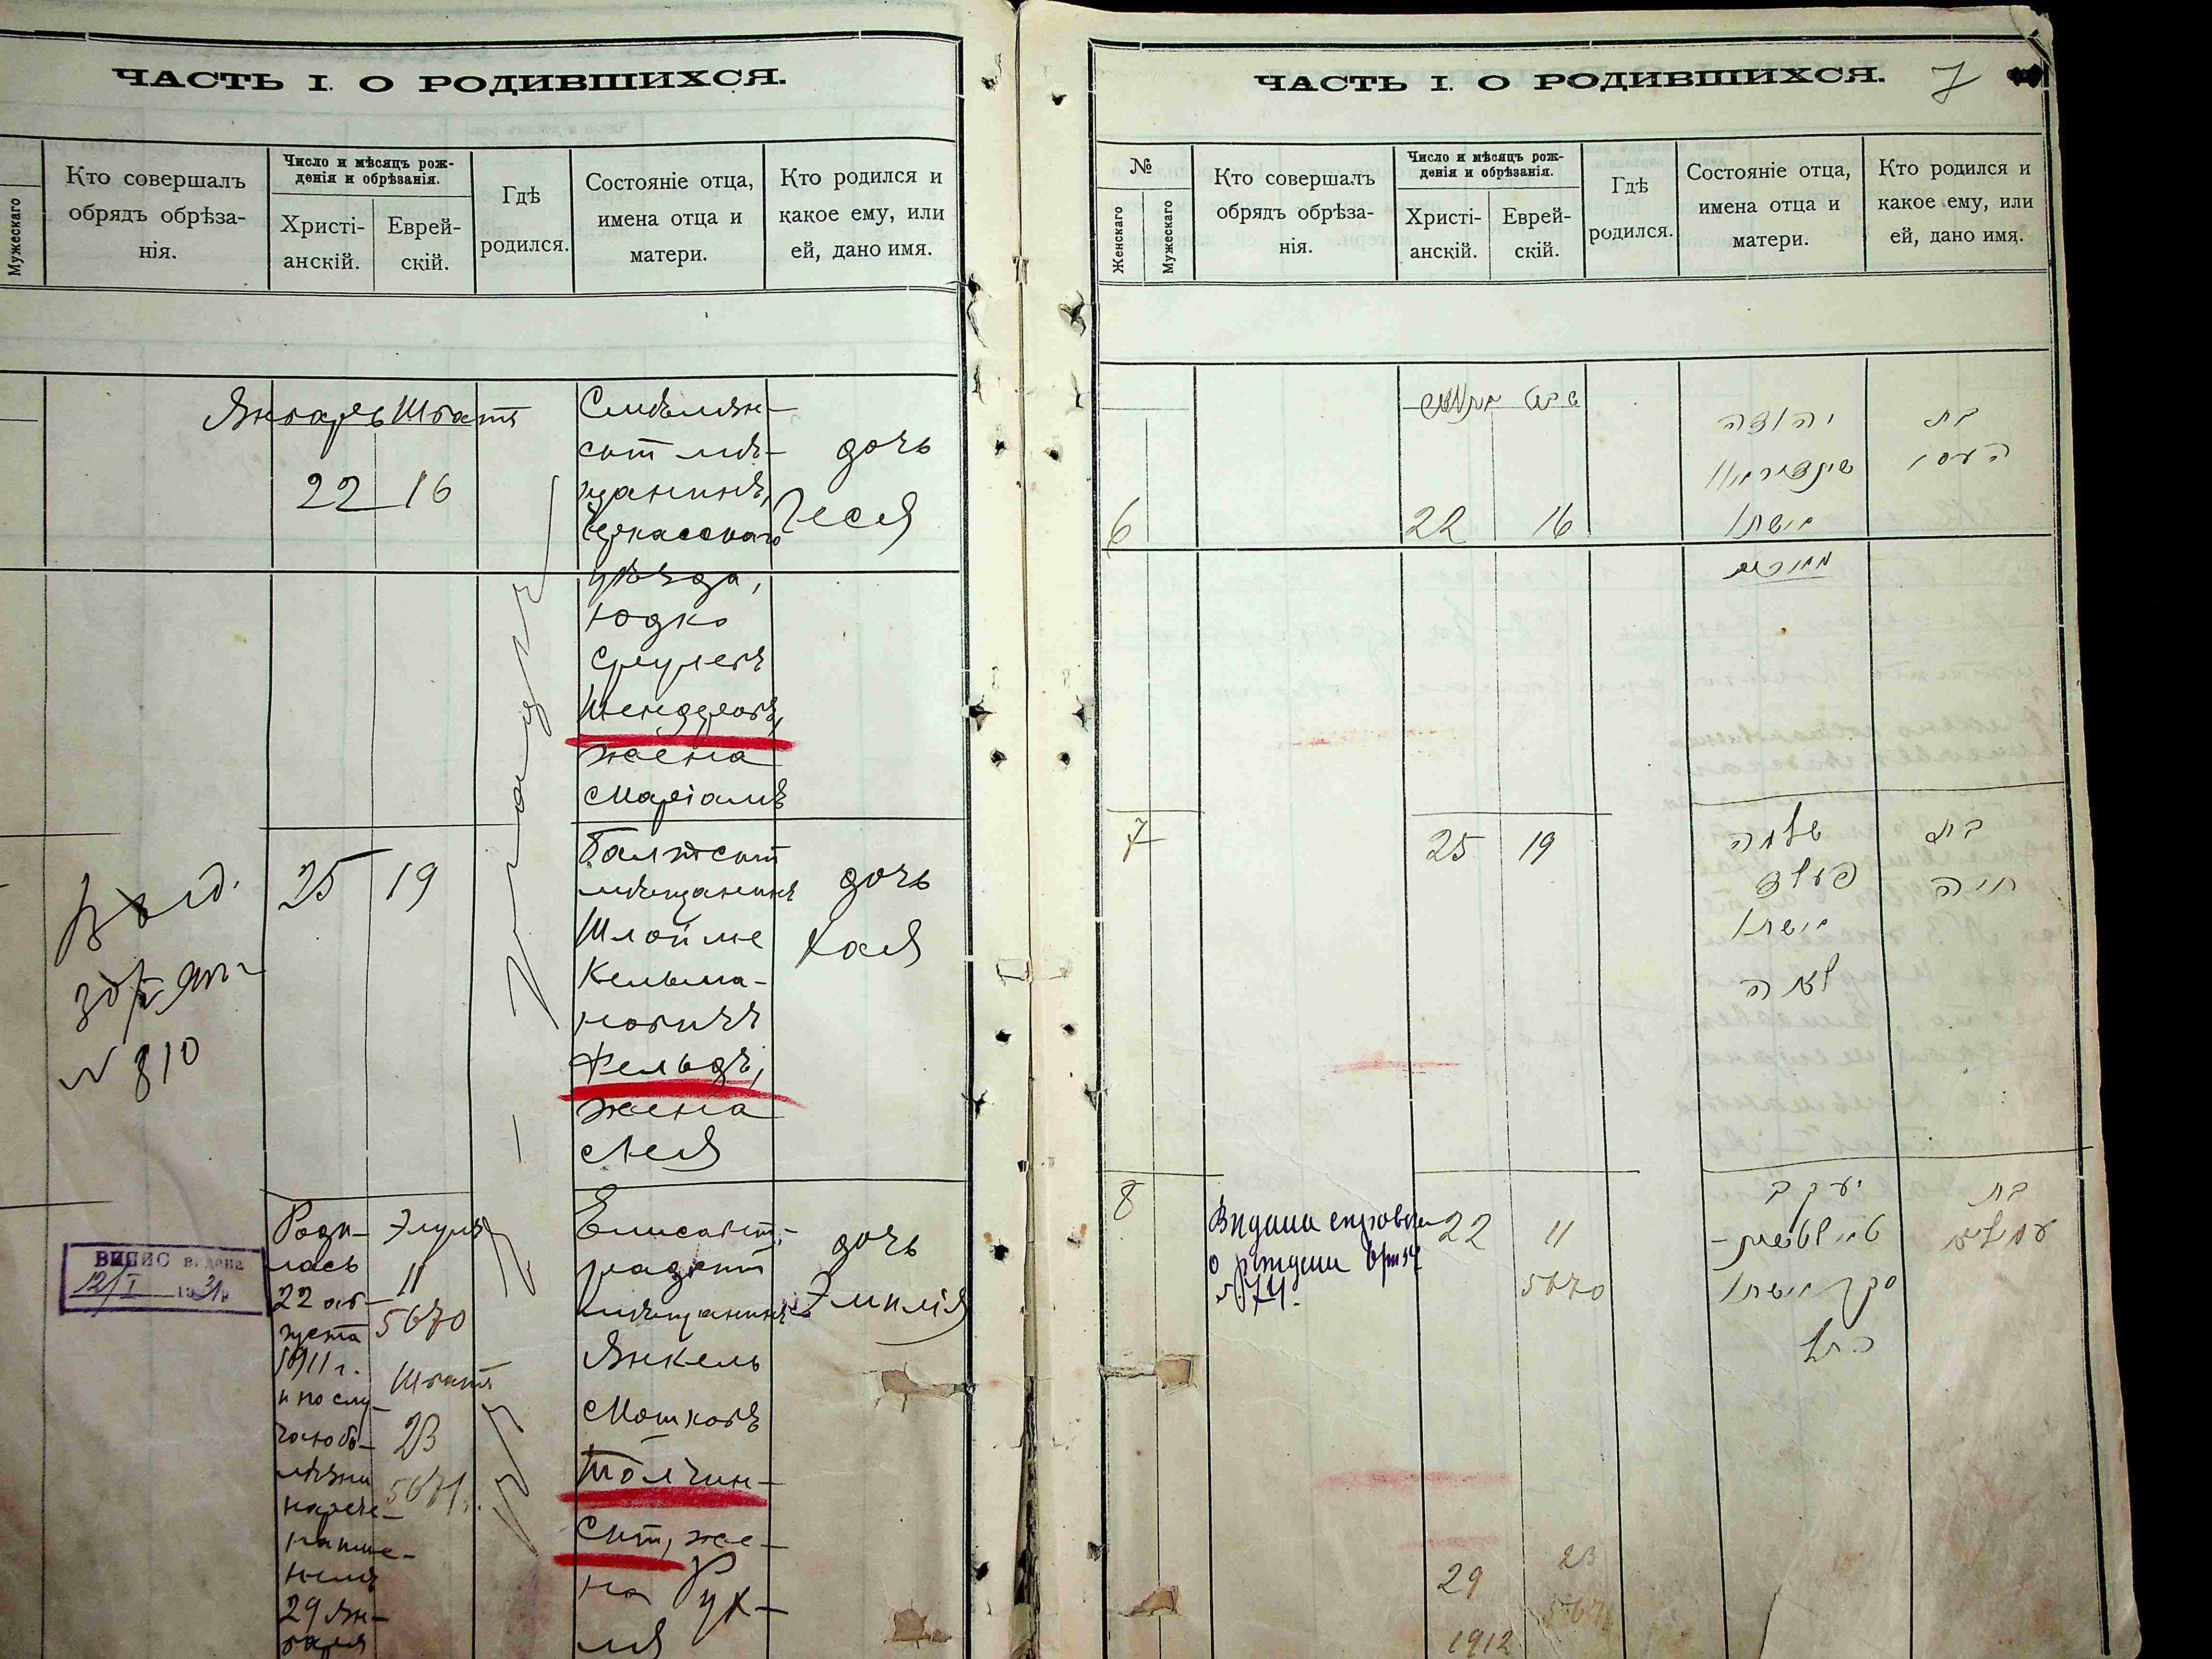 ЧАСТЬ I. О РОДИВШИХСЯ.
Мужескаго
Кто совершалъ
обрядъ обрѣза-
нія.
Число и мѣсяцъ рож-
денія и обрѣзанія.
Христі-
анскій.
Еврей-
скій.
Гдѣ
родился.
Состояніе отца,
имена отца и
матери.
Кто родился и
какое ему, или
ей, дано имя.
Январь Шватъ
22 16
Смѣлян-
скій мѣ-
щанинъ,
Черкасскаго
уѣзда,
Юдко
Срулевъ
жена
Маріамъ
дочь
Геся
Выд.
№ 810
25 19
Балтскій
мѣщанинъ
Шлойме
Кельма-
новичъ
Фельдъ,
жена
Лея
дочь
Хая
ВИПИС видана
12/I 1931 р
Роди-
лась
22 ав-
густа
1911 г.
и по слу-
чаю бо-
лѣзни
нарече-
на име-
немъ
29 Ян-
варя
Элулъ
11
5670
Шватъ
23
5671
Елисавет-
градскій
мѣщанинъ
Янкель
Мошковъ
Толчин-
скій, же-
на Рух-
ля
дочь
Эмилія
ЧАСТЬ I. О РОДИВШИХСЯ.
7
№
Женскаго
Мужескаго
Кто совершалъ
обрядъ обрѣза-
нія.
Число и мѣсяцъ рож-
денія и обрѣзанія.
Христі-
анскій.
Еврей-
скій.
Гдѣ
родился.
Состояніе отца,
имена отца и
матери.
Кто родился и
какое ему, или
ей, дано имя.
6
22 16
יהודה
אשתו
מרים
בת
העסי
7
25 19
שלמה
פעלד
אשתו
לאה
בת
חיה
8
Видана
№ 74.
22 11
5670
יעקב
סקי אשתו
רחל
בת
עמיליא
29 23
1912 5671